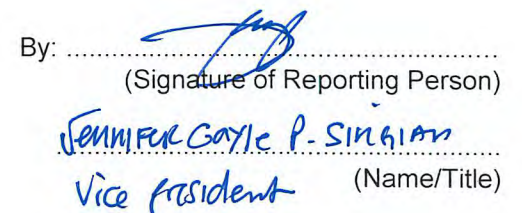 By: ........................................................
(Signature of Reporting Person)
JENNIFER GAYLE P. SINGIAN
Vice President (Name/Title)